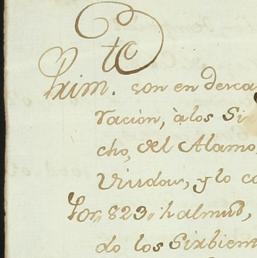 to
Prim. son en desca
racion, à los Si
cho, del Alamo
Viudow, y lo co
Jor, 829, halmud,
do los Sirbien